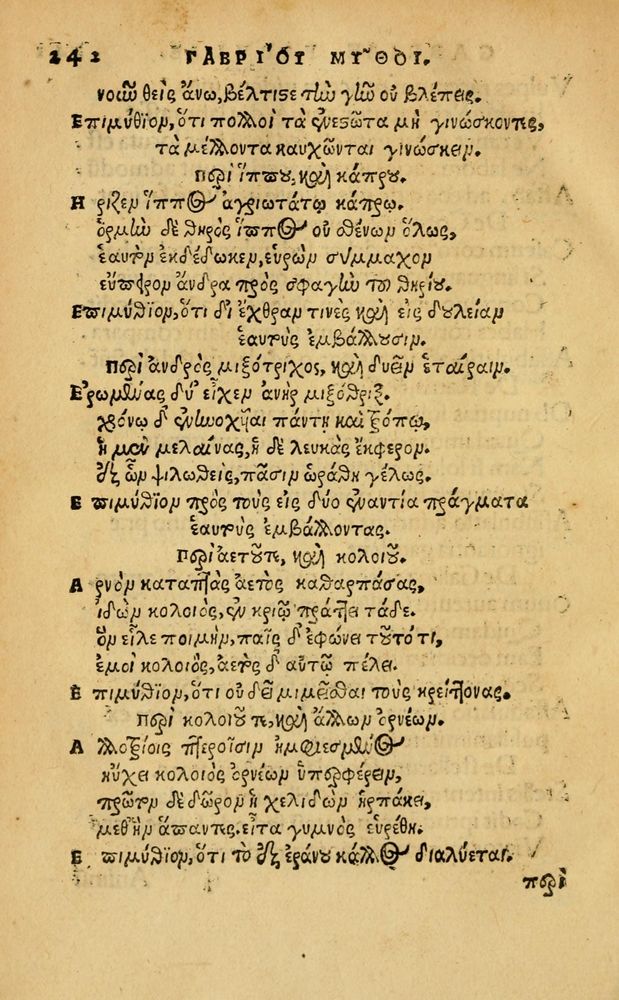 242 ΓΑΒΡΙ´ΟΥ ΜΥ῀ΘΟΙ.
νοῦν θεὶς ἄνω, βέλτιστε τὴν γῆν οὐ βλέπεις.
Επιμύθιον, ὅτι πολλοὶ τὰ ἐνεστῶτα μὴ γινώσκοντες,
τὰ μέλλοντα καυχῶνται γινώσκειν.
Περὶ ἵππου, καὶ κάπρου.
Ηριζεν ἵππος ἀγριωτάτῳ κάπρῳ.
ὁρμὴν δὲ θηρὸς ἵππος οὐ σθένων ὅλως,
ἑαυτὸν ἐκδέδωκεν, εὑρὼν σύμμαχον
εὔφρον ἄνδρα πρὸς σφαγὴν τοῦ θηρίου.
Επιμύθιον, ὅτι δι ἔχθραν τινὲς καὶ εἰς δουλείαν
ἑαυτοὺς ἐμβάλλουσιν.
Περὶ ἀνδρὸς μιξότριχος, καὶ δυεῖν ἑταίραιν.
Ερωμένας δύ εἶχεν ἀνὴρ μιξόθριξ.
χρόνῳ δ πάντη καὶ τρόπῳ,
ἡ μὲν μελαίνας, ἡ δὲ λευκὰς ἔκφερον.
ἐξ ὧν ψιλωθεὶς, πᾶσιν ὡράθη γέλως.
Επιμύθιον πρὸς τοὺς εἰς δύο ἐναντία πράγματα
ἑαυτοὺς ἐμβάλλοντας.
Περὶ ἀετοῦ τε, καὶ κολοιοῦ.
Αρνὸν καταπτὰς ἀετὸς καθαρπάσας,
ἰδὼν κολοιὸς, ἐν κριῷ πράττει τάδε.
ὃν εἷλε ποιμὴν, παῖς δ ἐφώνει τοῦτό τι,
ἐμοὶ κολοιὸς, ἀετὸς δ αὐτῷ πέλει.
Επιμύθιον, ὅτι οὐ δεῖ μιμεῖσθαι τοὺς κρείττονας.
Περὶ κολοιοῦ τε, καὶ ἄλλων ὀρνέων.
Αλλοτρίοις πτεροῖσιν ἠμφιεσμένος
ηὔχει κολοιὸς ὀρνέων ὑπερφέρειν,
πρῶτον δὲ δῶρον ἡ χελιδὼν ἥρπακει,
μεθ ἣν ἅπαντες. εἶτα γυμνὸς εὑρέθη.
Επιμύθιον, ὅτι τὸ ἐξ ἐράνου κάλλος διαλύεται.
περὶ